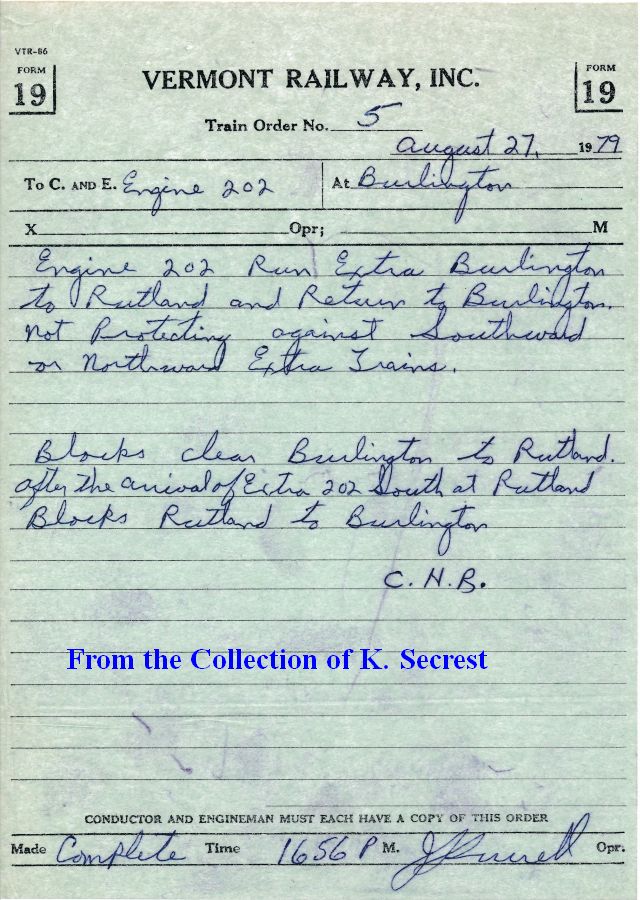 VTR-86
FORM 19
FORM 19
VERMONT RAILWAY, INC.
Train Order No. 5
August 27, 1979
To C. AND E. Engine 202 At Burlington
X Opr; M
Engine 202 Run Extra Burlington
to Rutland and Return to Burlington.
not Protecting against Southward
or Northward Extra Trains.
Blocks clear Burlington to Rutland.
after the arrival of Extra 202 South at Rutland
Blocks Rutland to Burlington
C. H. B.
From the Collection of K. Secrest
CONDUCTOR AND ENGINEMAN MUST EACH HAVE A COPY OF THIS ORDER
Made Complete Time 1656 P M. Opr.